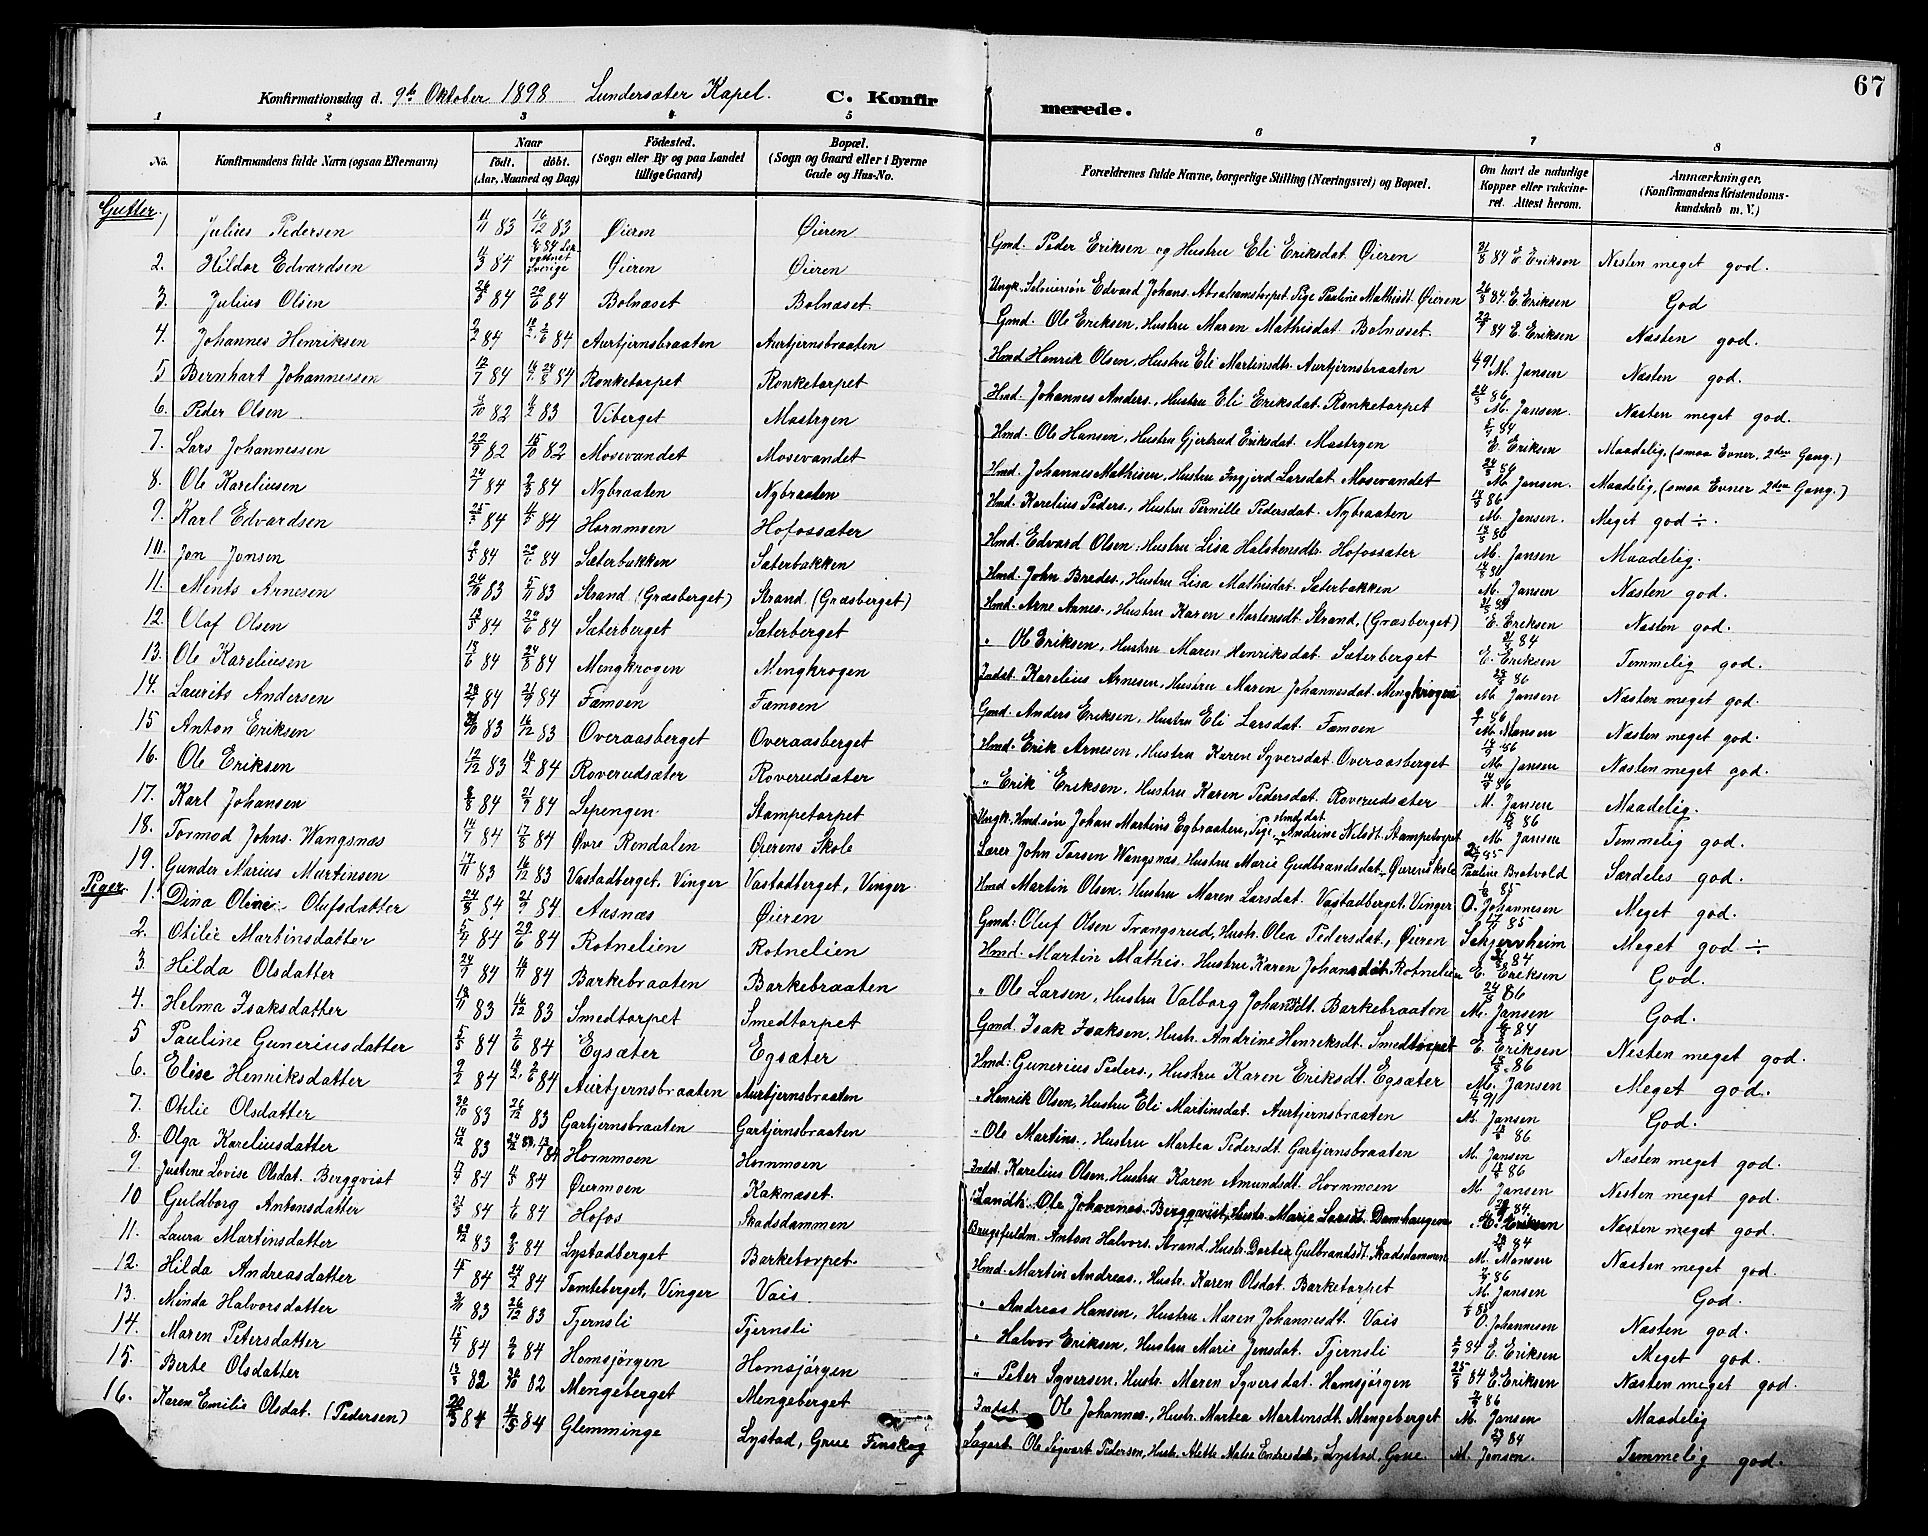 67
Konfirmationsdag d. 9de Oktober 1898 Lundersæter Kapel. C. Konfirmerede.
1 2 3 4 5 6 7 8
No. Konfirmandens fulde Navn (ogsaa Efternavn) Naar født. døbt. (Aar, Maaned og Dag) Födested. (Sogn eller By og paa Landet tillige Gaard) Bopæl. (Sogn og Gaard eller i Byerne Gade og Hus-No. Forældrenes fulde Navne, borgerlige Stilling (Næringsvei) og Bopæl. Om havt de naturlige Kopper eller vakcineret. Attest herom. Anmærkninger. (Konfirmandens Kristendomskundskab m. V.)
Gutter
1 Julius Pedersen 11/11 83 16/12 83 Øieren Øieren Gmd. Peder Eriksen og Hustru Eli Eriksdat. Øieren 21/8 84 E. Eriksen Nesten meget god.
2. Hildor Edvardsen 11/3 84 Sverige Øieren Øieren Ungk. Selveiersøn Edvard Johans. Abrahamstorpet. Pige Pauline Mathisdt. Øieren 26/8 84. E. Eriksen God
3. Julius Olsen 84 29/6 84 Bolnæset Bolnæset Gmd. Ole Eriksen, Hustru Maren Mathisdat. Bolnæset. 84 E. Eriksen Næsten god.
4. Johannes Henriksen 9/2 84 84 Aurtjernsbraaten Aurtjernsbraaten Hmd Henrik Olsen, Hustru Eli Martinsdt. Aurtjernsbraaten 4/9 91 M. Jansen Næsten god.
5 Bernhart Johannessen 12/7 84 84 Ronketorpet Ronketorpet Hmd. Johannes Anders., Hustru Eli Eriksdat. Ronketorpet 24/8 86 M. Jansen. Næsten meget god.
6. Peder Olsen. 82 83 Viberget Mastryen Hmd. Ole Hansen, Hustru Gjertrud Eriksdat. Mastryen 84 E. Eriksen Maadelig, (smaa Evner. 2den Gang.)
7. Lars Johannessen 22/9 82 15/10 82 Mosevandet Mosevandet Hmd. Johannes Mathisen, Hustru Ingjerd Larsdat. Mosevandet 24/8 86 M. Jansen. Maadelig, (smaa Evner 2den Gang.)
8. Ole Kareliusen 24/7 84 84 Nybraaten Nybraaten Hmd. Karelius Peders., Hustru Pernille Pedersdat. Nybraaten 86 M. Jansen. Meget god ÷.
9. Karl Edvardsen 84 84 Hornmoen Hofossæter Hmd. Edvard Olsen, Hustru Lisa Halstensdt. Hofossæter 86 M. Jansen Maadelig.
10. Jon Jonsen 84 29/6 84 Sæterbakken Sæterbakken Hmd. John Bredes., Hustru Lisa Mathisdat. Sæterbakken 86 M. Jansen Næsten god.
11. Ments Arnesen 24/10 83 83 Strand. (Græsberget) Strand. (Græsberget) Hmd. Arne Arnes., Hustru Karen Martensdt. Strand, (Græsberget) E. Eriksen Næsten god.
12. Olaf Olsen 84 29/6 84 Sæterberget Sæterberget " Ole Eriksen, Hustru Maren Henriksdat. Sæterberget 84 E. Eriksen Temmelig god.
13. Ole Kareliusen 84 24/8 84 Mengkrogen Mengkrogen Indst. Karelius Arnesen, Hustru Maren Johannesdat. Mengkrogen 86 M. Jansen Næsten meget god.
14. Laurits Andersen 84 21/9 84 Fæmoen Fæmoen Gmd. Anders Eriksen, Hustru Eli Larsdat. Fæmoen 86 M. Næsten meget god.
15 Anton Eriksen 83 16/12 83 Overaasberget Overaasberget Hmd. Erik Arnesen, Hustru Karen Syversdat. Overaasberget 86 M. Jansen Næsten meget god.
16. Ole Eriksen 12/12 83 84 Roverudsæter Roverudsæter " Erik Eriksen, Hustru Karen Pedersdat. Roverudsæter 86 M. Jansen Maadelig.
17. Karl Johansen 8/8 84 21/9 84 Lepengen Stampetorpet Ungk. Hmd.søn Johan Martins Egbraaten, Pige Andrine Nilsdt. Stampetorpet 86 M. Jansen Temmelig god.
18. Tormod Johns. Wangsnæs 14/7 84 17/8 84 Øvre Rendalen Øierens Skole Lærer John Torsen Wangsnæs, Hustru Marie Gudbrandsdat. Øierenskole 85 Pauline Bratvold Særdeles god.
19. Gunder Marius Martinsen 17/11 83 16/12 83 Vastadberget, Vinger Vastadberget, Vinger Hmd Martin Olsen, Hustru Maren Larsdat. Vastadberget. Vinger 85 O. Johannesen Meget god.
Piger
1. Dina Oline Olufsdatter 24/8 84 21/9 84 Aasnæs Øieren Gmd. Oluf Olsen Trangsrud, Hustr. Olea Pedersdat., Øieren 17/9 85 Skjervheim Meget god ÷
2. Otilie Martinsdatter 84 29/6 84 Rotnelien Rotnelien Hmd. Martin Mathis. Hustru Karen Johansdat. Rotnelien 84 E. Eriksen God.
3. Hilda Olsdatter 84 84 Barkebraaten Barkebraaten " Ole Larsen, Hustru Valborg Johansdt. Barkebraaten 24/8 86 M. Jansen God.
4. Helma Isaksdatter 83 16/12 83 Smedtorpet Smedtorpet Gmd. Isak Isaksen, Hustr. Andrine Henriksdt. Smedtorpet 84 E. Eriksen Nesten meget god.
5 Pauline Gunerius datter 5/5 84 2/6 84 Egsæter Egsæter Hmd. Gunerius Peders., Hustru Karen Eriksdt. Egsæter 86 M. Jansen Meget god.
6. Elise Henriksdatter 9/2 84 84 Aurtjernsbraaten Aurtjernsbraaten " Henrik Olsen, Hustru Eli Martinsdat. Aurtjernsbraaten 4/9 91 M. Jansen God.
7. Otilie Olsdatter 30/10 83 26/12 83 Gartjernsbraaten Gartjernsbraaten " Ole Martins., Hustru Martea Pedersdt. Gartjernsbraaten 86 M. Jansen Næsten meget god.
8. Olga Kareliusdatter 14/12 83 84 Hornmoen Hornmoen Indst. Karelius Olsen, Hustru Karen Amundsdt. Hornmoen 86 M. Jansen Næsten meget god.
9. Justine Lovise Olsdat. Bergqvist 84 84 Øiermoen Kaknæset. Landh. Ole Johannes. Bergqvist, Hustr. Marie Larsdt. Damhaugen 84. E. Eriksen Næsten meget god.
10 Guldborg Antonsdatter 84 1/6 84 Hofos Skadsdammen Brugsfuldm. Anton Halvors. Strand, Hustr. Dortea Gulbrandsdt. Skadsdammen 84 M. Næsten meget god.
11. Laura Martinsdatter 83 84 Lystadberget Barketorpet. Hmd. Martin Andreas., Hustr. Karen Olsdat. Barketorpet 86 M. Jansen God.
12. Hilda Andreasdatter 84 24/2 84 Tomteberget, Vinger Vais " Andreas Hansen, Hustru Maren Johannesdt. Vais 85 O. Johannesen Næsten god.
13. Minda Halvorsdatter 83 26/12 83 Tjernsli Tjernsli " Halvor Eriksen, Hustru Marie Jensdat. Tjernsli 84 E. Eriksen Meget god.
14. Maren Petersdatter 84 2/6 84 Homsjørgen Homsjørgen " Peter Syversen, Hustr. Maren Syversdat. Homsjørgen 25/8 84 E. Eriksen Næsten meget god.
15. Berte Olsdatter 82 82 Mengeberget Mengeberget Indst. Ole Johannes., Hustr. Martea Martinsdt. Mengeberget 86 M. Jansen Maadelig
16. Karen Emilie Olsdat. (Pedersen) 84 84 Glemminge Lystad, Grue Finskog Sagarb. Ole Sigvart Pedersen, Hustr. Alette Matea Endresdat., Lystad, Grue. 84 M. Jansen. Temmelig god.